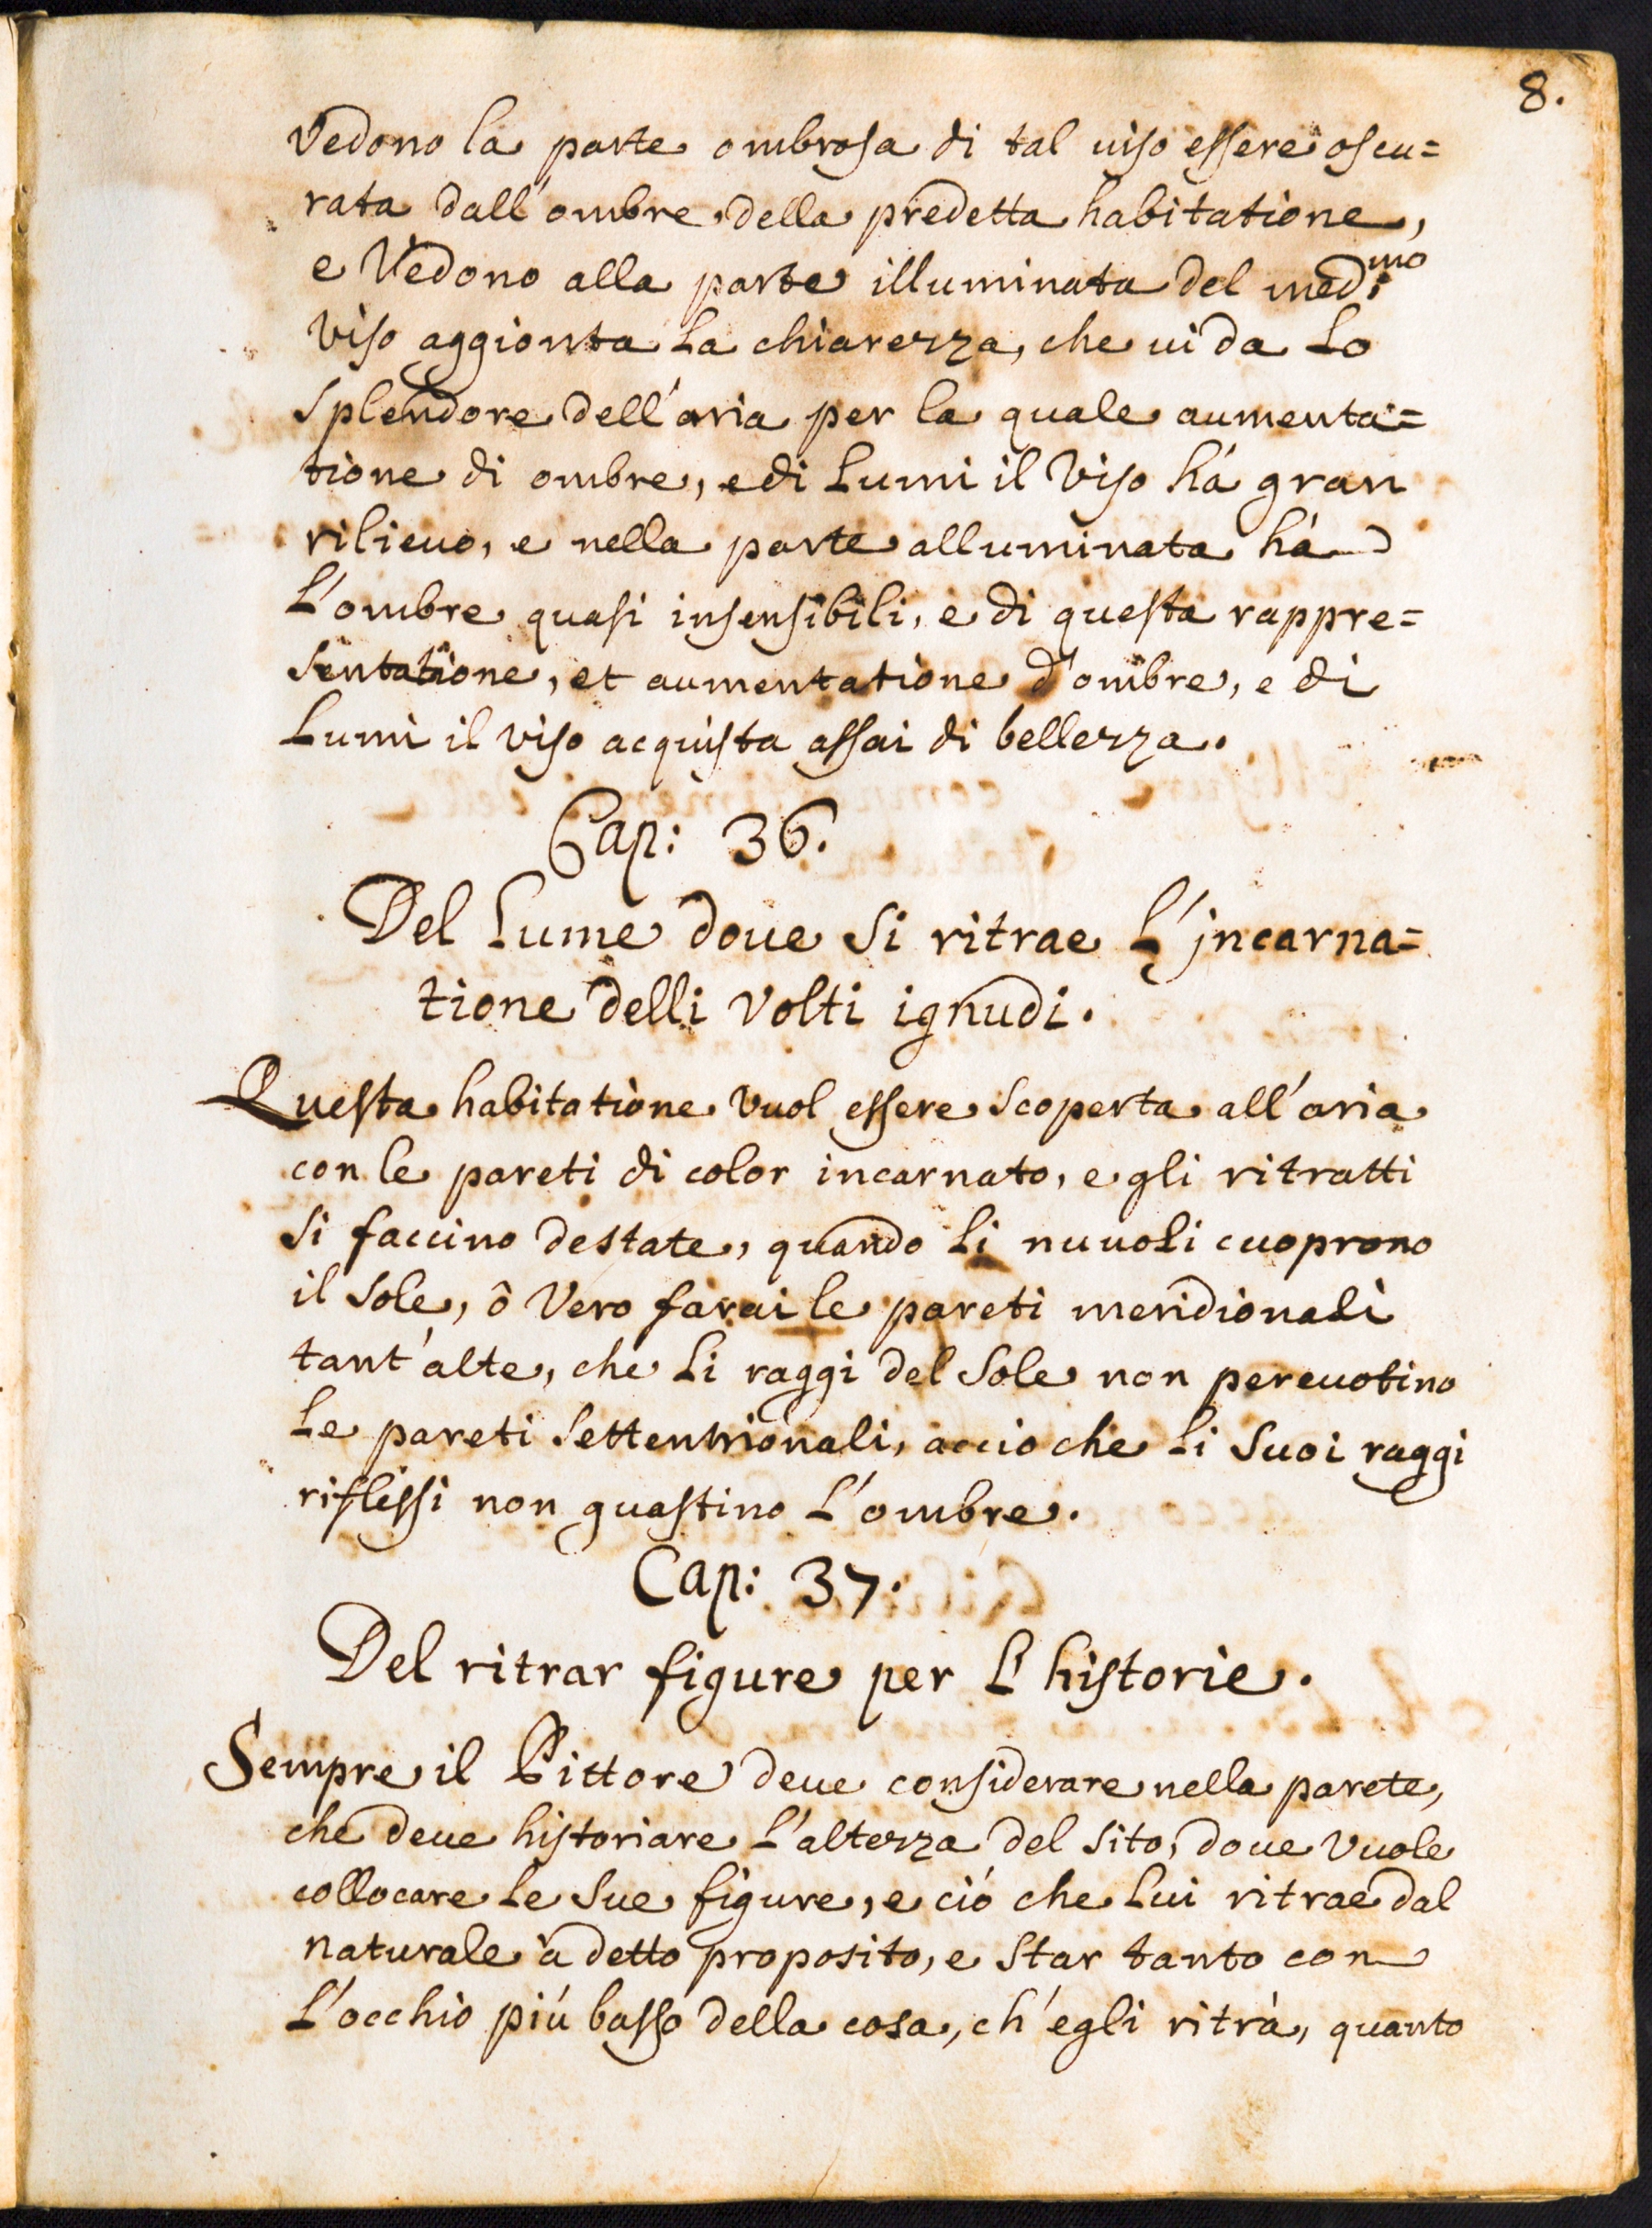 8.
Vedono la parte ombrosa di tal uiso essere oscu=
rata dall'ombre della predetta habitatione,
e Vedono alla parte illuminata del med:mo
Viso aggionta La chiarezza, che ui da Lo
Splendore dell'aria per la quale aumenta=
tione di ombre, e di Lumi il Viso há gran
rilieuo, e nella parte alluminata há
L'ombre quasi insensibili, e di questa rappre=
sentatione, et aumentatione d'ombre, e di
Lumi il viso acquista assai di bellezza.
Cap: 36.
Del Lume doue Si ritrae L'jncarna=
tione delli Volti ignudi.
Questa habitatione Vuol essere Scoperta all'aria
con le pareti di color incarnato, e gli ritratti
Si faccino destate, quando Li nuuoli cuoprono
il Sole, ô Vero farai le pareti meridionali
tant'alte, che Li raggi del Sole non percuotino
Le pareti Settentrionali, accio che Li Suoi raggi
riflessi non guastino L'ombre.
Cap: 37.
Del ritrar figure per L'historie.
Sempre il Pittore deue considerare nella parete,
che deue historiare L'altezza del Sito, doue Vuole
collocare Le Sue figure, e ció che Lui ritrae dal
naturale à detto proposito, e Star tanto con
L'occhio piú basso della cosa, ch'egli ritrà, quanto